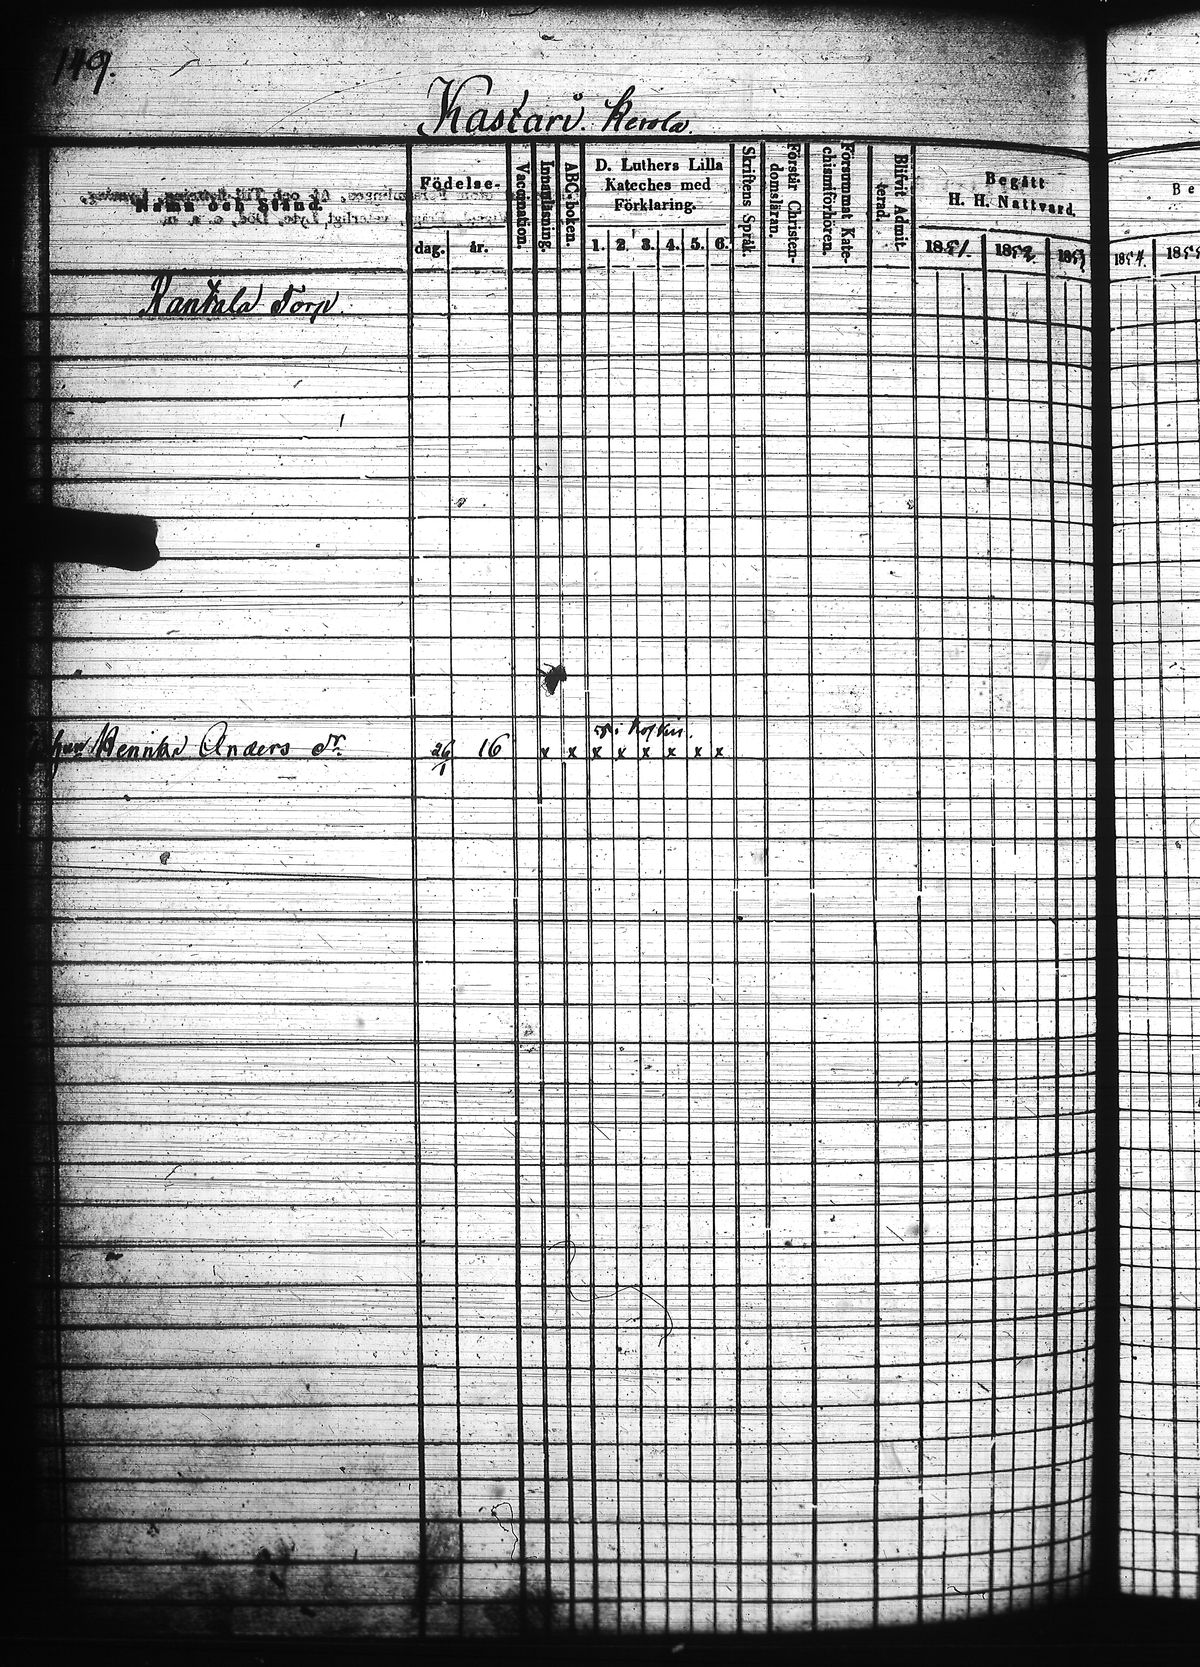 119.
Kastari. Kerola.
Namn och Stånd.
Födelse-
dag. år.
Vaccination.
Innanläsning.
ABC-boken.
D. Luthers Lilla
Kateches med
Förklaring.
1. 2. 3. 4. 5. 6.
Skriftens Språk.
Förstår Christen-
domsläran.
Försummat Kate-
chismiförhören.
Blifvit Admit-
terad.
Begått
H. H. Nattvard.
1851. 1852. 1853
Be
1854. 1855
Torp.
Anders dr. 26/1 16 x x x x x x x x